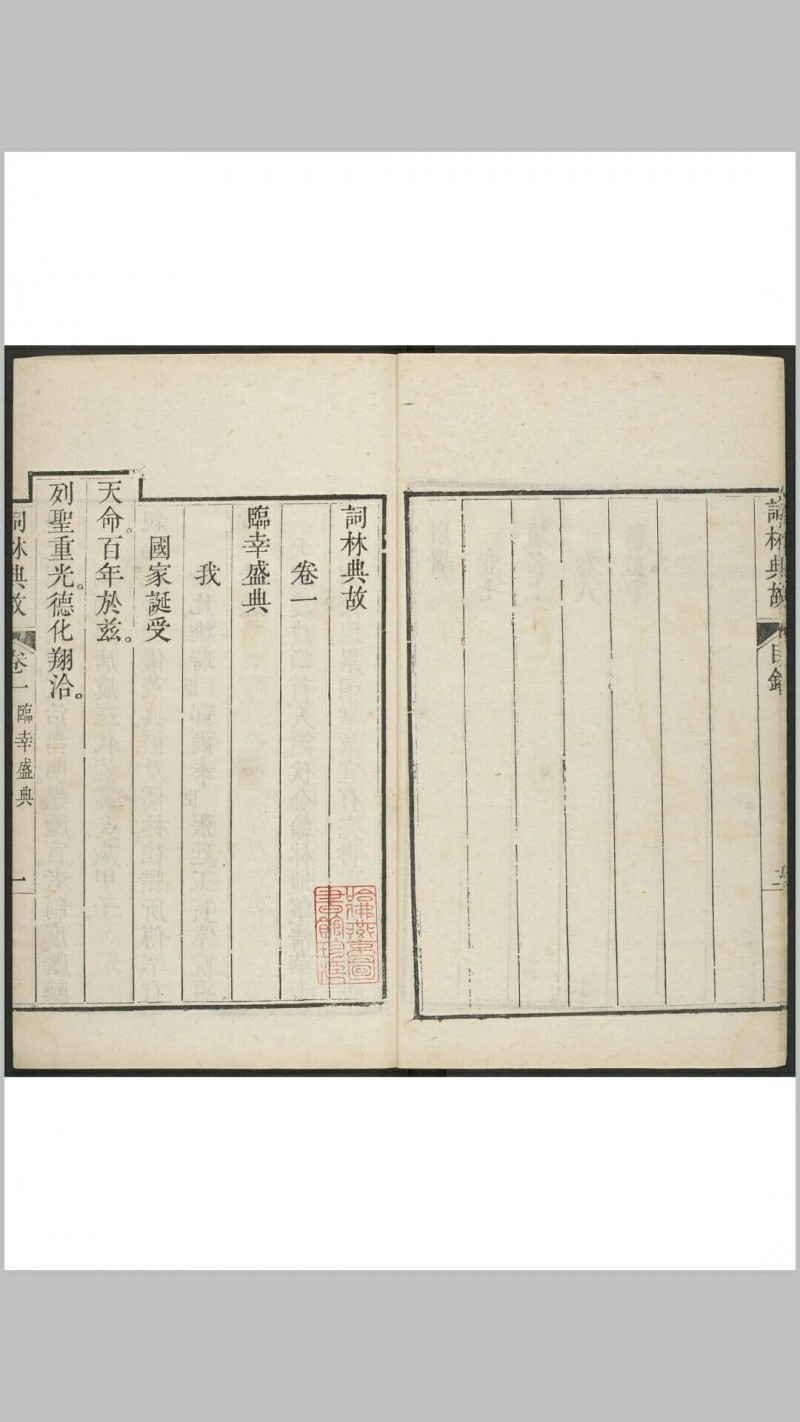 詞林典故
目錄
詞林典故
卷一
臨幸盛典
我
國家誕受
天命。百年於兹。
列聖重光。德化翔洽。
詞林典故
卷一
臨幸盛典
一
哈佛燕京圖書館珍藏